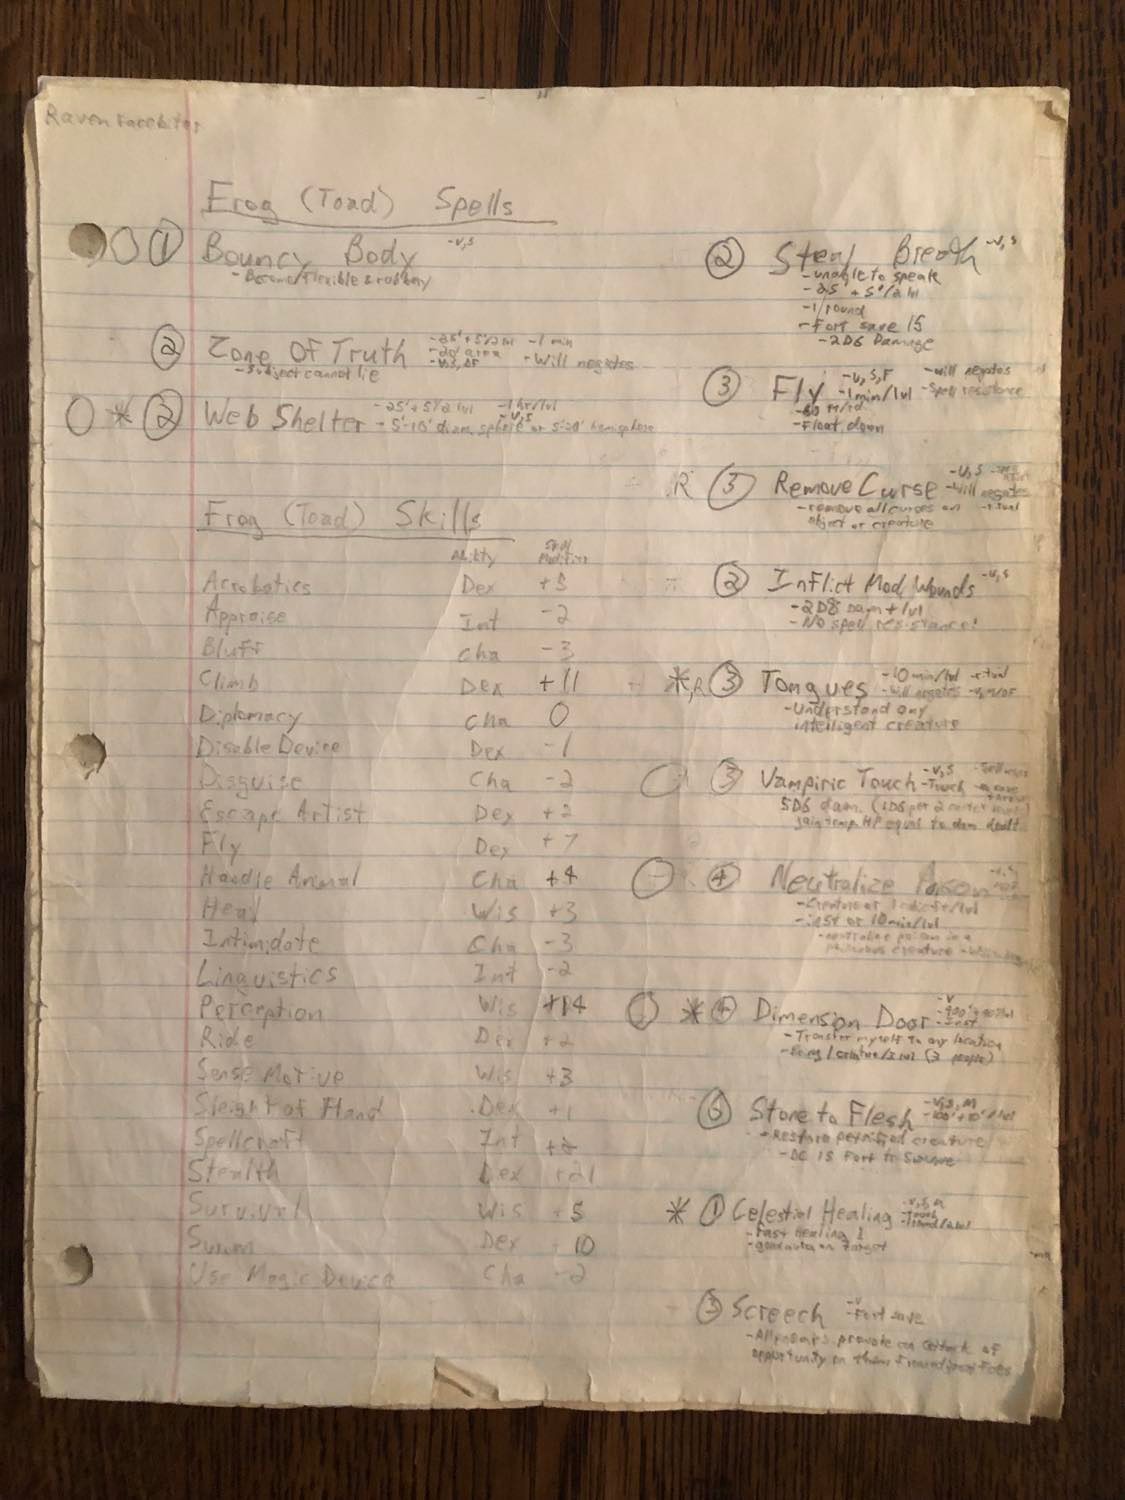 Raven Facebiter
Frog (Toad) Spells
① Bouncy Body -V,S
- Become flexible & rubbery
② Zone Of Truth -25'+5'/2lvl -1 min
-20' area
-V,S,DF -Will negates
- Subject cannot lie
* ② Web Shelter -25'+5'/2lvl -1hr/lvl
-V,S
- 5'-10' diam. sphere or 5'-20' hemisphere
Frog (Toad) Skills
Ability Skill Modifier
Acrobatics Dex +5
Appraise Int -2
Bluff Cha -3
Climb Dex +11
Diplomacy Cha 0
Disable Device Dex -1
Disguise Cha -2
Escape Artist Dex +2
Fly Dex +7
Handle Animal Cha +4
Heal Wis +3
Intimidate Cha -3
Linguistics Int -2
Perception Wis +14
Ride Dex +2
Sense Motive Wis +3
Sleight of Hand Dex +1
Spellcraft Int +2
Stealth Dex +21
Survival Wis +5
Swim Dex 10
Use Magic Device Cha -2
② Steal Breath -V,S
- unable to speak
- 25' + 5'/2 lvl
- 1/round
- Fort save 15
- 2D6 Damage
③ Fly -V,S,F -will negates
-1min/lvl -Spell resistance
-Float down
R ③ Remove Curse -V,S
-Will negates
- remove all curses on -ritual
object or creature
② Inflict Mod Wounds -V,S
- 2D8 Dam + lvl
- No spell resistance!
*,R ③ Tongues -10min/lvl -ritual
-Will negates -V,M/DF
- Understand any
intelligent creature
③ Vampiric Touch -V,S
-Touch
5D6 dam. (1D6 per 2 caster level)
gain temp HP equal to dam dealt
④ Neutralize Poison
- Creature or
- inst or 10min/lvl
- neutralize poison in a
creature
* ④ Dimension Door -V
-400'+40'/lvl
- Transfer myself to any location
- Bring 1 creature/3 lvl (3 people)
⑥ Stone to Flesh -V,S,M
-100'+10'/lvl
- Restore petrified creature
- DC 15 Fort to survive
* ① Celestial Healing -V,S,M
-touch
- Fast Healing 1
- good aura on target
③ Screech -V
-Fort save
- All enemies provoke an attack of
opportunity on them from